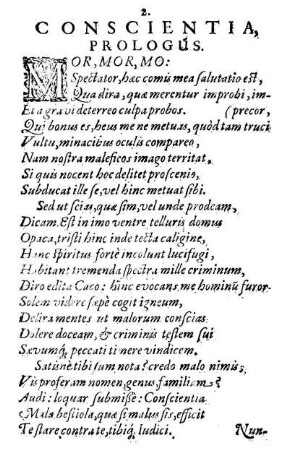 2.
CONSCIENTIA,
PROLOGUS.
MOR, MOR, MO:
Spectator, hæc comis mea salutatio est,
Qua dira, quæ merentur improbi, im-
Et a gravi deterreo culpa probos. (precor,
Qui bonus es, heus me ne metuas, quòd tam truci
Vultu, minacibus oculis compareo,
Nam nostra maleficos imago territat,
Si quis nocent hoc delitet proscenio,
Subducat ille se, vel hinc metuat sibi.
Sed ut scias, quæ sim, vel unde prodeam,
Dicam. Est in imo ventre telluris domus
Opaca, tristi hinc inde tecta caligine,
Hanc spiritus fortè incolunt lucifugi,
Habitant tremenda spectra mille criminum,
Diro edita Caco: hinc evocans me hominũ furor
Solem videre sæpè cogit igneum,
Delira mentes ut malorum conscias
Dolere doceam, & criminis testem sui
Sævumq́; peccati ni vere vindicem.
Satisnè tibi sum nota? credo malo nimis,
Vis proferam nomen, genus, familiam?
Audi: loquar submissè: Conscientia
Mala, bestiola, quæ si malus sis, efficit
Testare contra te, tibiq́; Iudici. Nun-